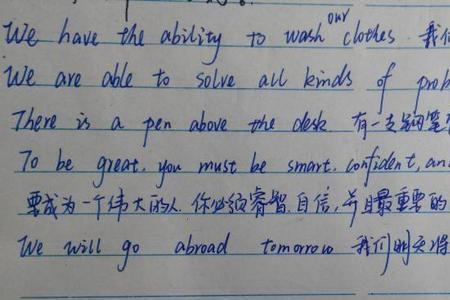 We have the ability to wash our clothes. 我们
We are able to solve all kinds of prob
There is a pen above the desk 有一支钢笔
To be great, you must be smart, confident, and
要成为一个伟大的人,你必须睿智,自信,并且最重要的
We will go abroad tomorrow 我们明天将